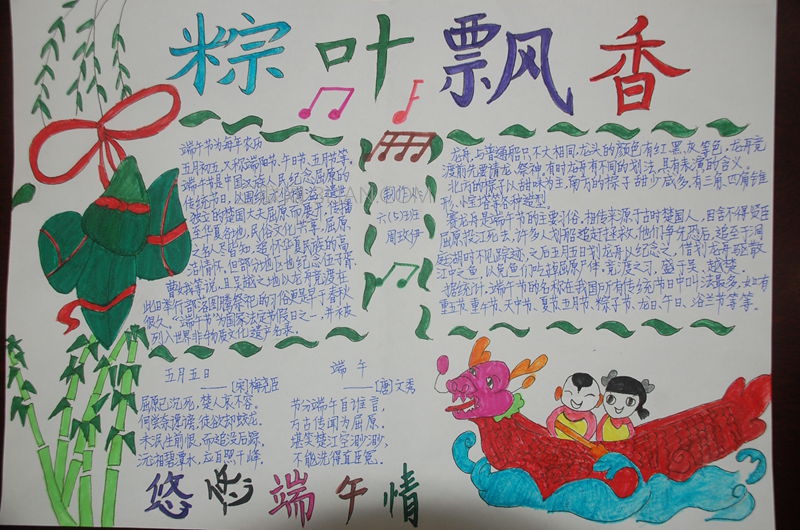 粽叶飘香
端午节为每年农历
五月初五,又称端阳节,午日节、五月节等。
端午节是中国汉族人民纪念屈原的
传统节日,以围绕才华横溢、遗世
独立的楚国大夫屈原而展开,传播
至华夏各地,民俗文化共享,屈原
之名人尽皆知,追怀华夏民族的高
洁情怀。但部分地区也纪念伍子胥、
曹娥等说。且吴越之地以龙舟竞渡在
此日举行部落图腾祭祀的习俗更是早于春秋
很久。“端午节”为国家法定节假日之一,并被
列入世界非物质文化遗产名录。
制作小
六(5)班
周玟伊
龙舟,与普通船只不大相同,龙头的颜色有红、黑、灰等色,龙舟竞
渡前先要请龙、祭神,有时龙舟有不同的划法,具有表演的含义。
北方的粽子以甜味为主,南方的粽子甜少咸多,有三角、四角锥
形、小宝塔等各种造型。
赛龙舟是端午节的主要习俗,相传来源于古时楚国人,因舍不得贤臣
屈原投江死去,许多人划船追赶拯救,他们争先恐后,追至于洞
庭湖时不见踪迹,之后五月五日划龙舟以纪念之,借划龙舟驱散
江中之鱼,以免鱼们吃掉屈原尸体,竞渡之习,盛于吴、越、楚。
据统计,端午节的名称在我国所有传统节日中叫法最多,如:有
重五节、重午节、天中节、夏节、五月节、粽子节、龙日、午日、浴兰节等等。
五月五日
——[宋]梅尧臣
屈原已沉死,楚人哀不容。
何尝奈谗谤,徒欲却蛟龙。
未泯生前恨,而追没后踪。
沅湘碧潭水,应自照千峰。
端午
——[唐]文秀
节分端午自谁言,
万古传闻为屈原。
堪笑楚江空渺渺,
不能洗得直臣冤。
悠悠端午情